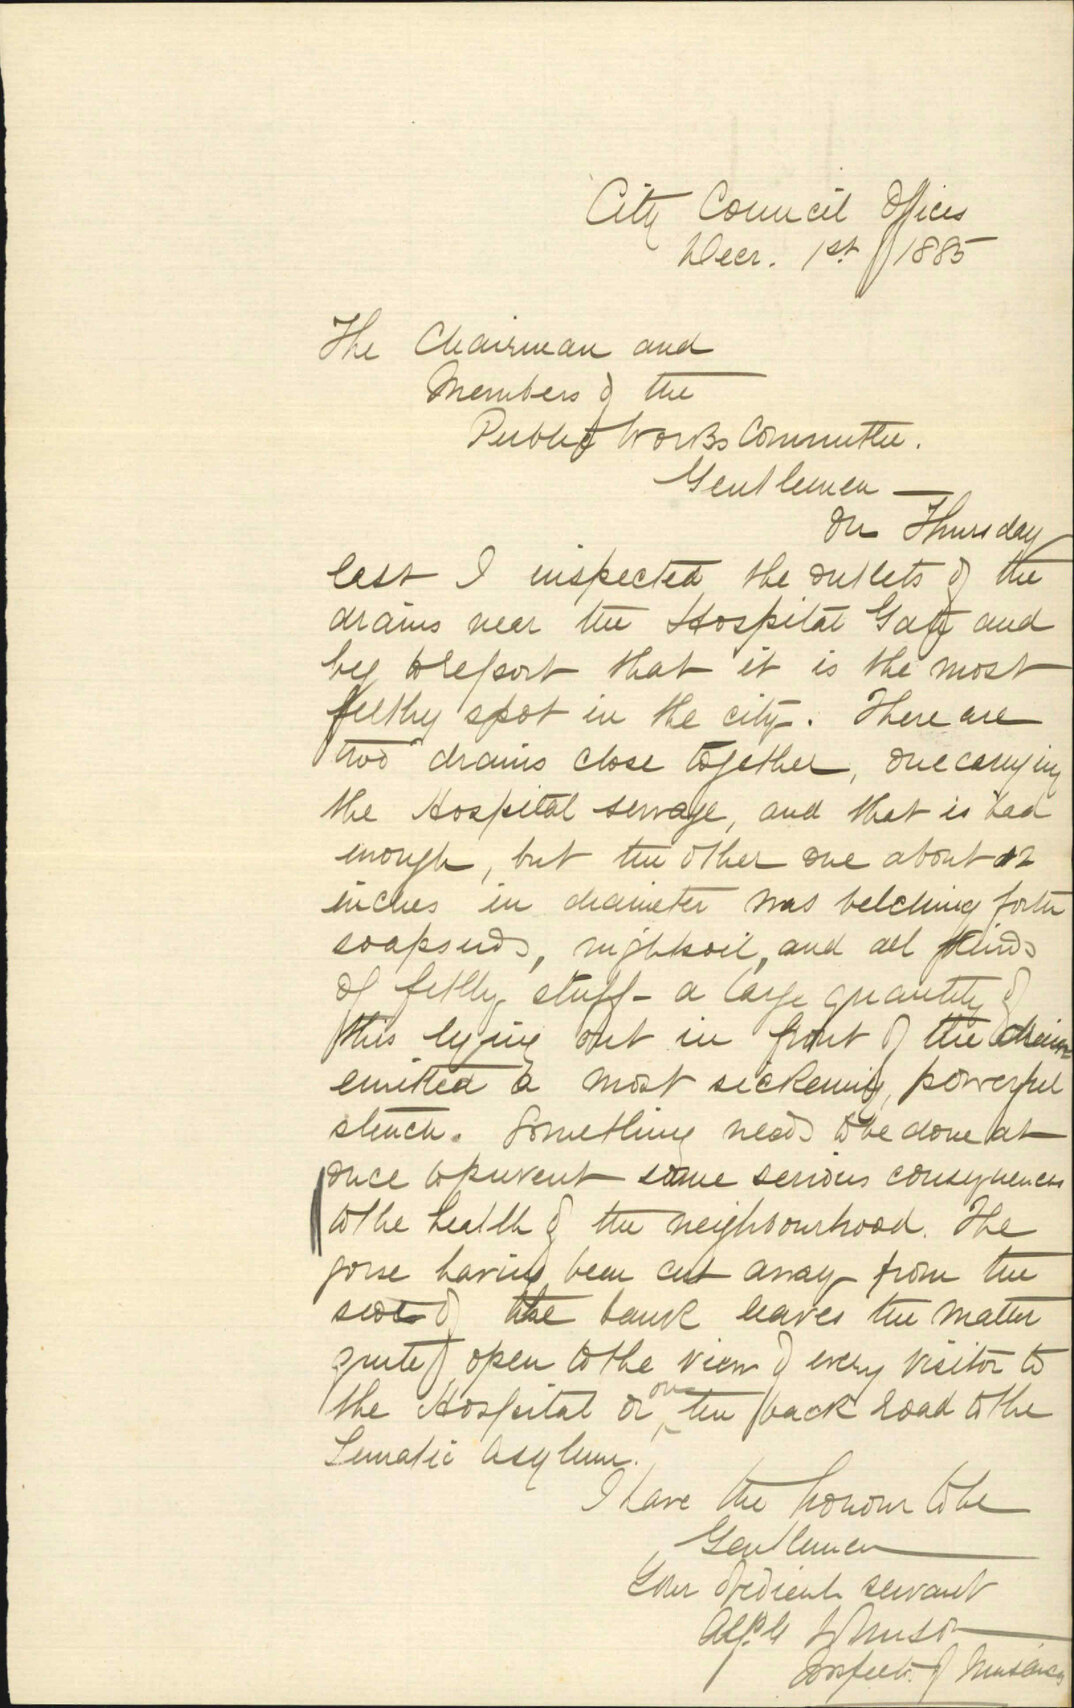 City Council Offices
Decr. 1st 1885
The Chairman and
Members of the
Public Works Committee.
Gentlemen —
On Thursday
last I inspected the outlets of the
drains near the Hospital Gate and
beg to report that it is the most
filthy spot in the city. There are
two drains close together, one carrying
the Hospital sewage, and that is bad
enough, but the other one about 12
inches in diameter was belching forth
soapsuds, nightsoil, and all kinds
of filthy stuff - a large quantity of
this lying out in front of the drain
emitted a most sickening, powerful
stench. Something needs to be done at
once to prevent some serious consequences
to the health of the neighbourhood. The
gorse having been cut away from the
side of the bank leaves the matter
quite open to the view of every visitor to
the Hospital or on the back road to the
Lunatic Asylum.
I have the honour to be
Gentlemen
Your obedient servant
Johnson
Inspector of Nuisances